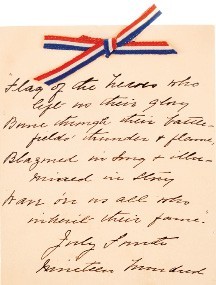 Flag of the heroes who
left us their glory
Borne through their battle-
fields' thunder & flame,
Blazoned in song & illu-
mined in story
Wave o'er us all who
inherit their fame.
July Fourth
Nineteen hundred